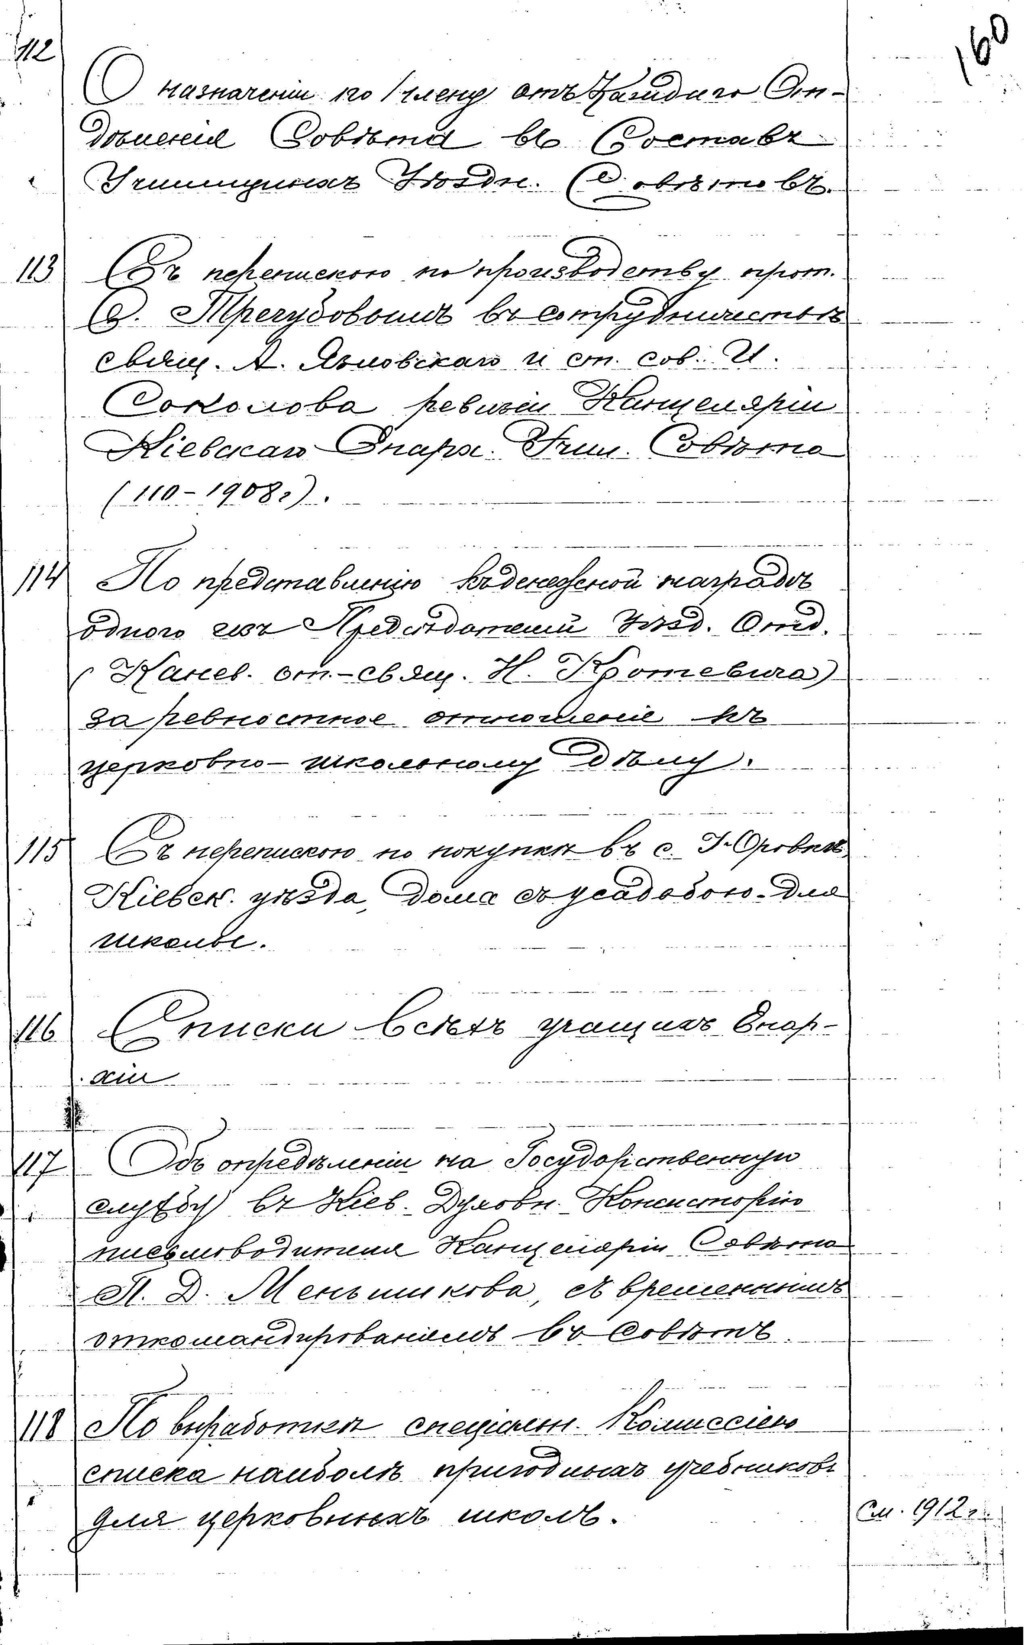 160
112
О назначеніи по 1 члену отъ Каждаго От-
дѣленія Совѣта въ Составъ
Училищныхъ Уѣздн. Совѣтовъ.
113 Съ перепискою по производству прот.
С. Трегубовымъ въ сотрудничествѣ
свящ. А. Яновскаго и ст. сов. И.
Соколова ревизіи Канцеляріи
Кіевскаго Епарх. Учил. Совѣта
(110-1908г).
114 По представленію къ денежной наградѣ
одного изъ Предсѣдателей Уѣзд. Отд.
(Канев. от.-свящ. Н. Кротевича)
за ревностное отношеніе къ
церковно-школьному дѣлу.
115 Съ перепискою по покупкѣ въ с. Юровкѣ,
Кіевск. уѣзда, дома съ усадьбою для
школы.
116 Списки всѣхъ учащихъ Епар-
хіи
117 Объ опредѣленіи на Государственную
службу въ Кіев. Духовн. Консисторію
письмоводителя Канцеляріи Совѣта
П. Д. Меньшикова, съ временнымъ
откомандированіемъ въ Совѣтъ.
118 По выработкѣ спеціальн. Комиссіею
списка наиболѣ пригодныхъ учебниковъ
для церковныхъ школъ.
См. 1912 г.